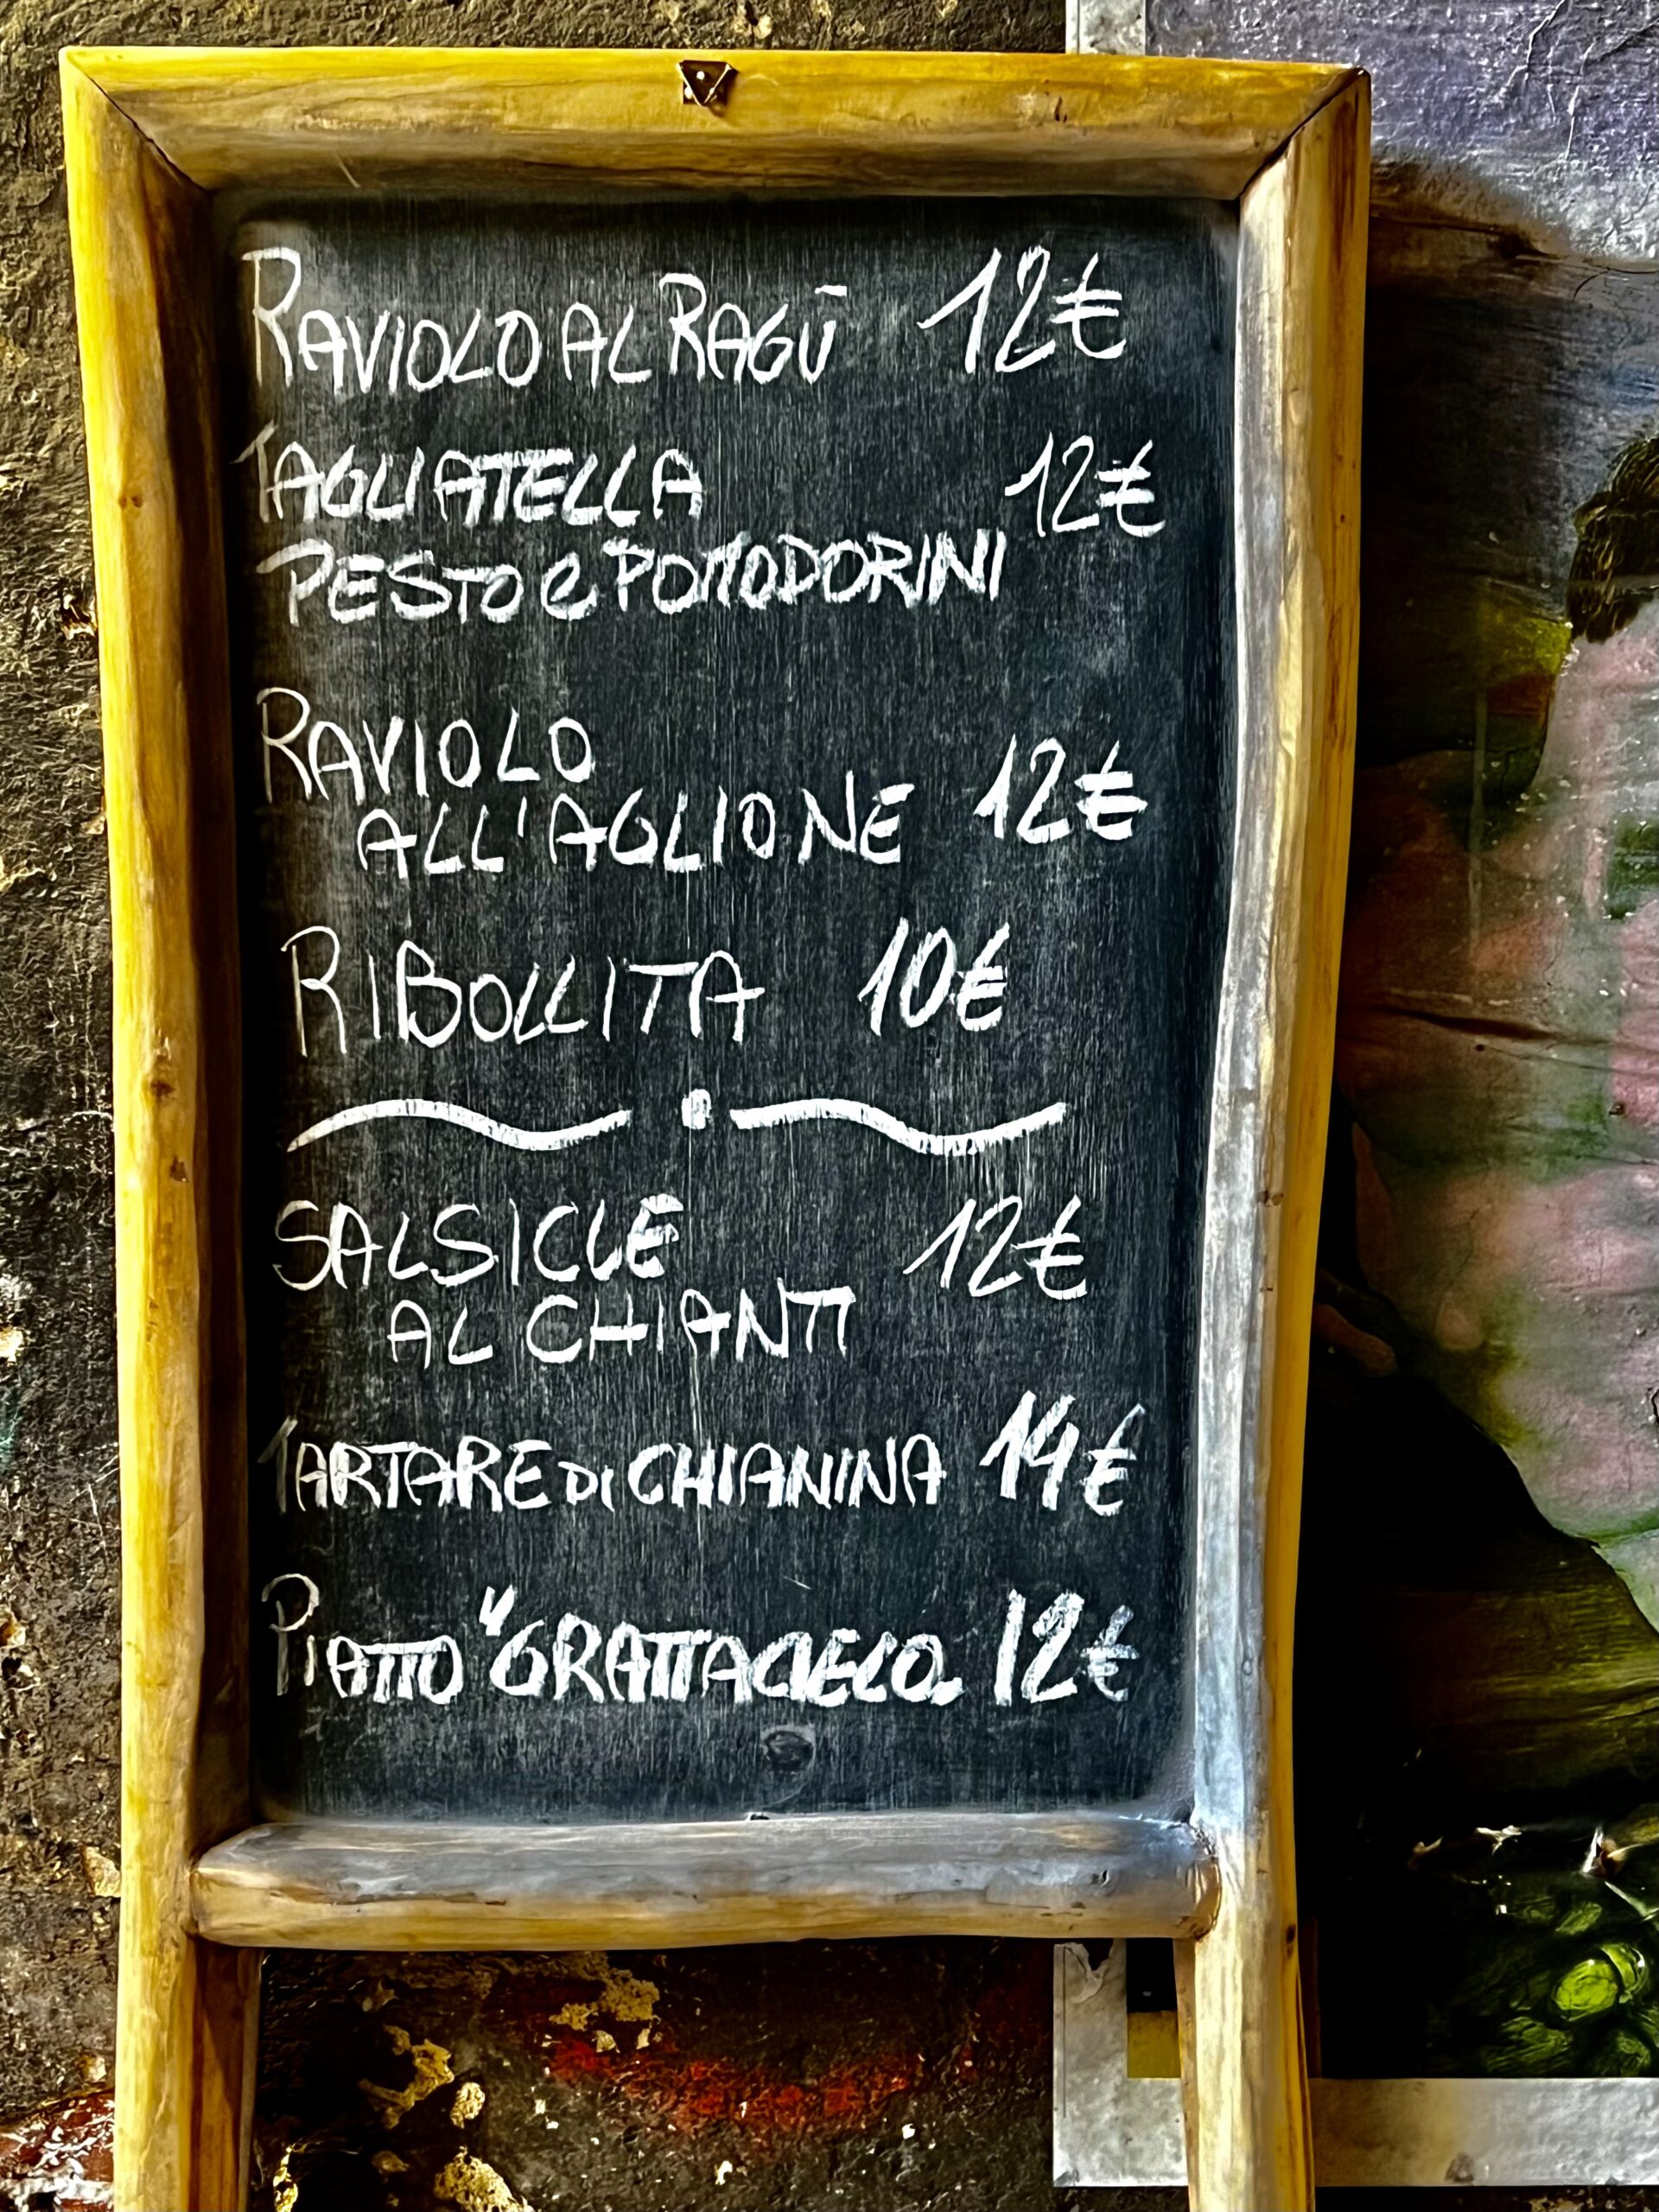 RAVIOLO AL RAGŪ 12€
TAGLIATELLA 12€
PESTO e POMODORINI
RAVIOLO
ALL'AGLIONE 12€
RIBOLLITA 10€
SALSICCE 12€
AL CHIANTI
TARTARE DI CHIANINA 14€
PIATTO "GRATTACIELO" 12€